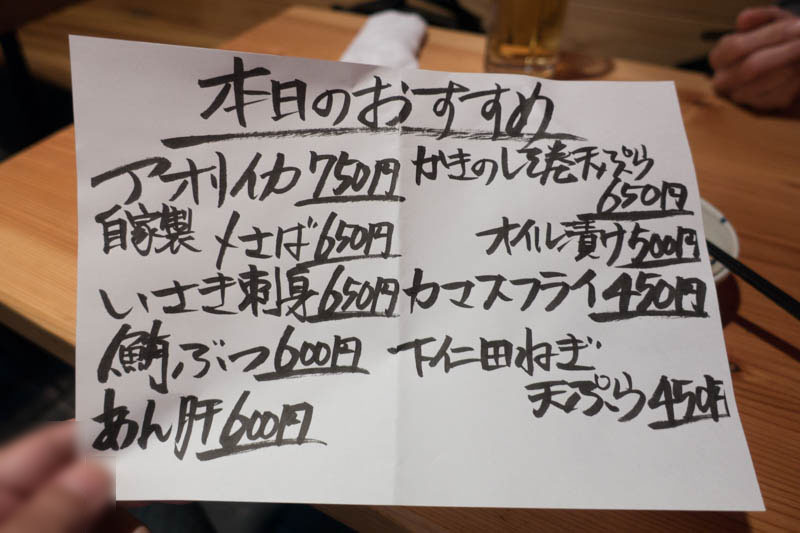 本日のおすすめ
アオリイカ 750円
自家製 〆さば 650円
いさき刺身 650円
鮪ぶつ 600円
あん肝 600円
かきのしそ巻天ぷら
650円
オイル漬け 500円
カマスフライ 450円
下仁田ねぎ
天ぷら 450円